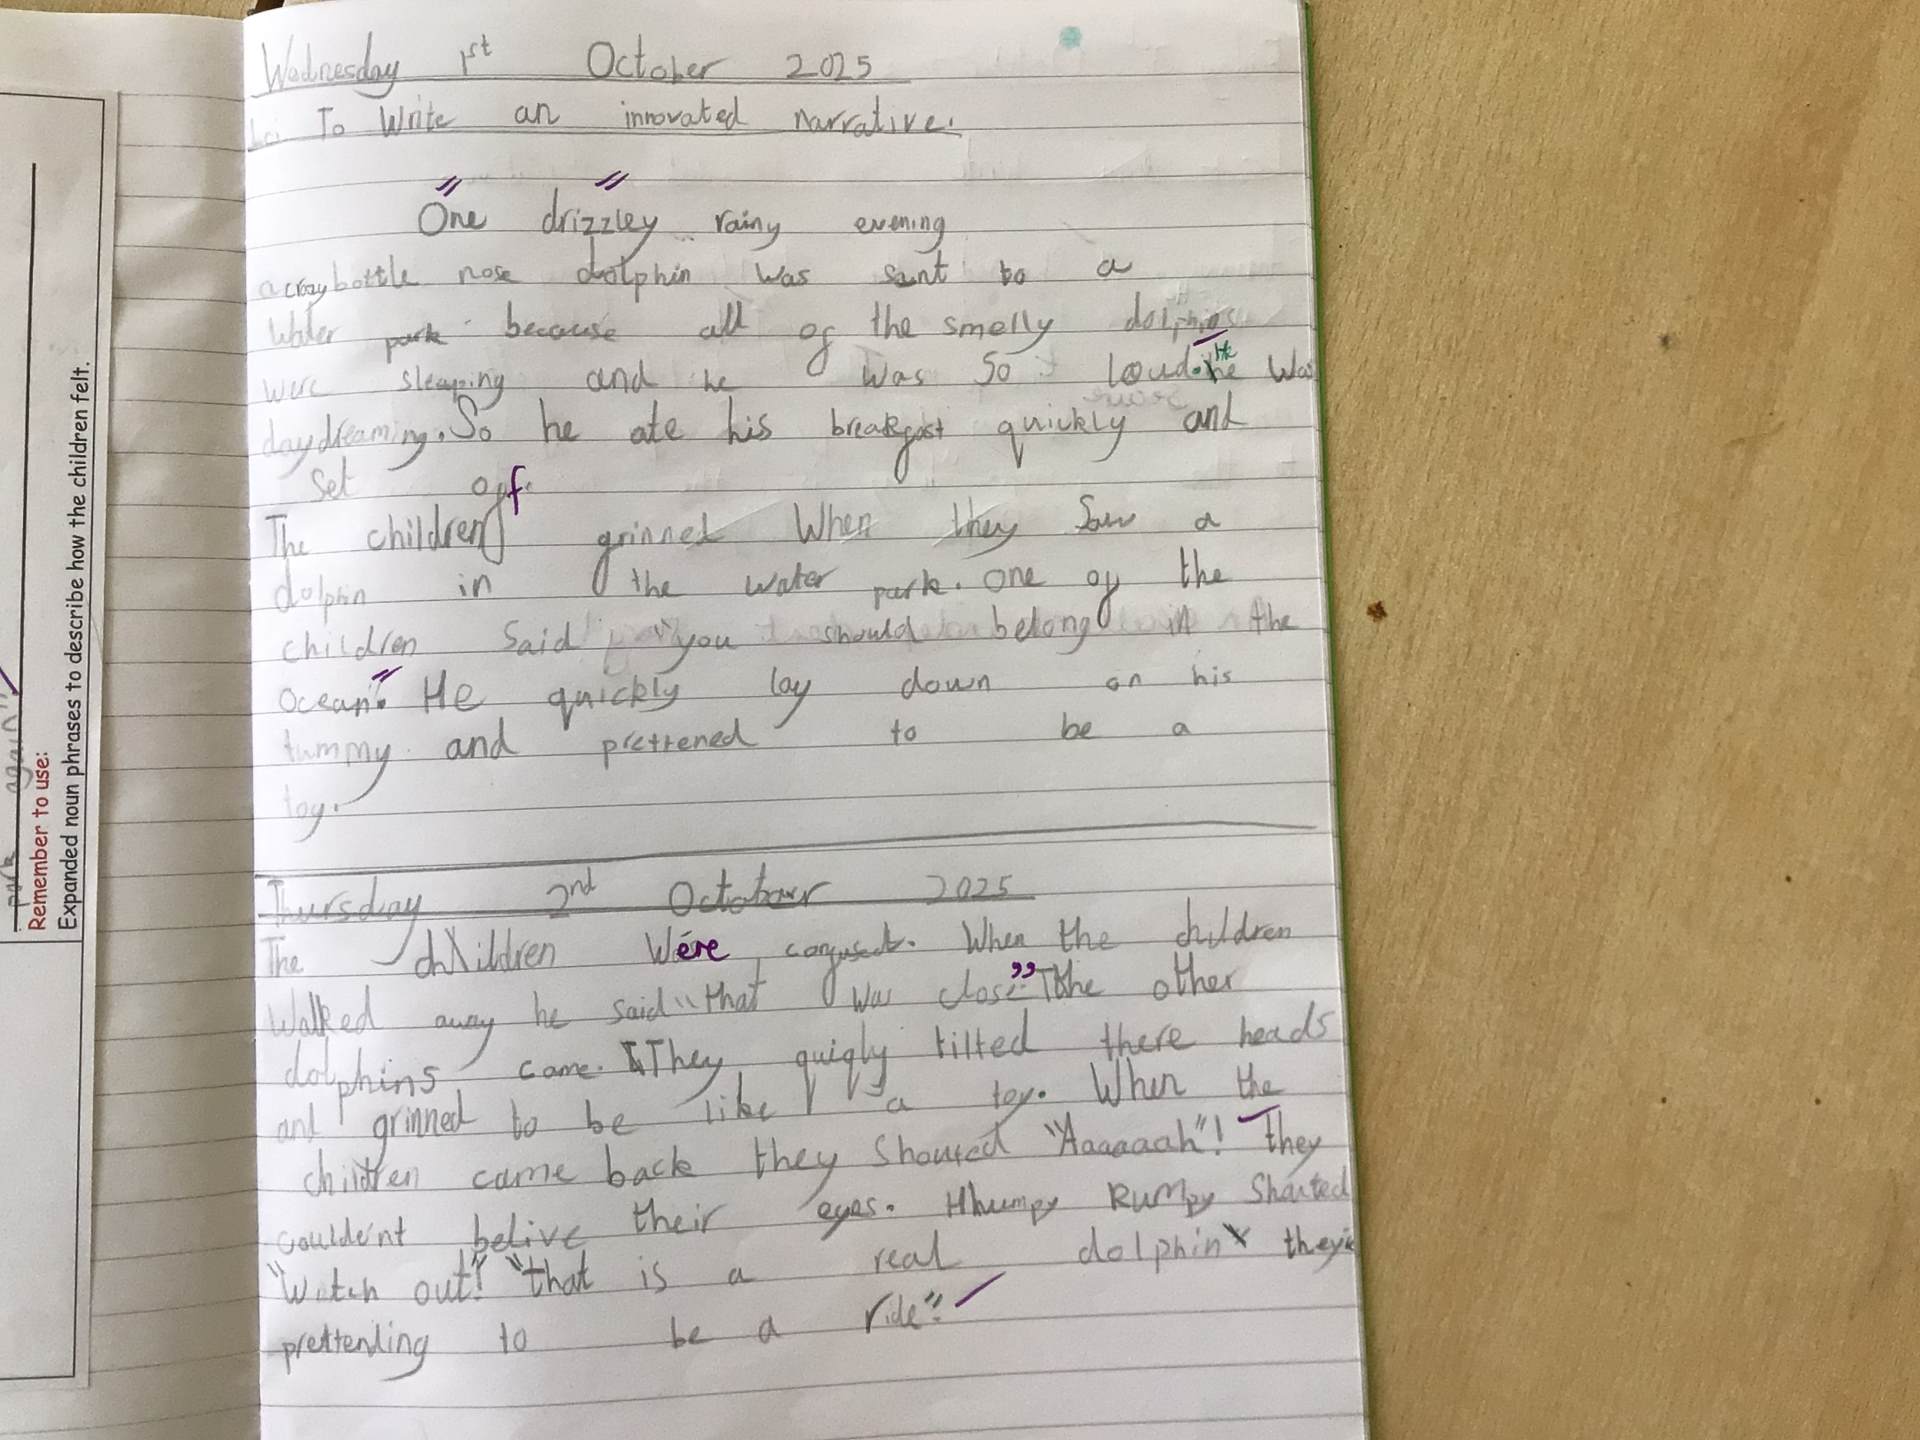 park again"
Remember to use:
Expanded noun phrases to describe how the children felt.
Wednesday 1st October 2025
To Write an innovated narrative.
One drizzley rainy evening
a crazy bottle nose dolphin was sent to a
water park because all of the smelly dolphins
were sleeping and he was So loud. He was
daydreaming. So he ate his breakfast quickly and
Set off.
The children grinned When they Saw a
dolphin in the water park. One of the
children Said "you should belong in the
Ocean". He quickly lay down on his
tummy and prettened to be a
toy.
Thursday 2nd October 2025
The children Were confused. When the children
walked away he said "that was close" The other
dolphins came. They quigly tilted there heads
and grinned to be like a toy. When the
children came back they Shouted "Aaaaaah"! They
couldent belive their eyes. Hhumpy Rumpy Shouted
"Watch out!" "that is a real dolphin
prettending to be a ride".